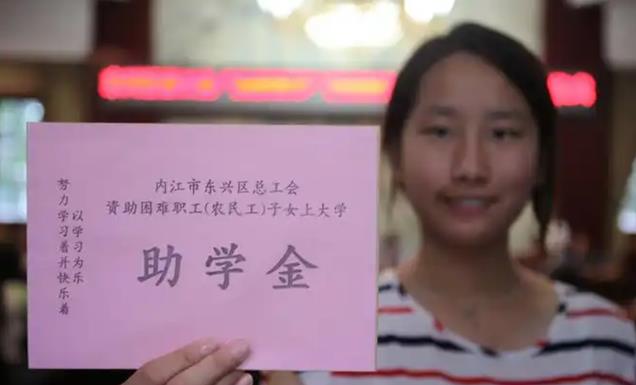 努力学习着并快乐着
以学习为乐
内江市东兴区总工会
资助困难职工(农民工)子女上大学
助学金